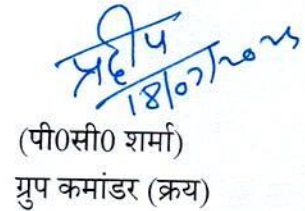 प्रदीप
18/07/2025
(पी0सी0 शर्मा)
ग्रुप कमांडर (क्रय)